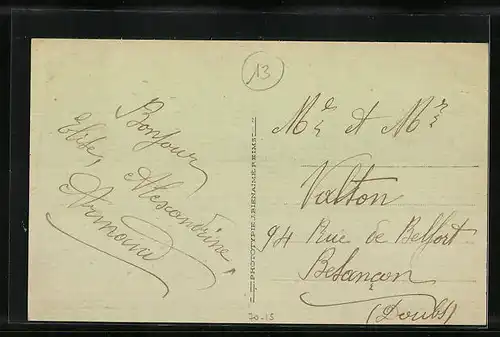 13
Bonjour
Elise, Alexandrine,
Armand
PHOTOTYPIE J. BIENAIMÉ REIMS
Me et Mr
Valton
94 Rue de Belfort
Besançon
(Doubs)
70-13